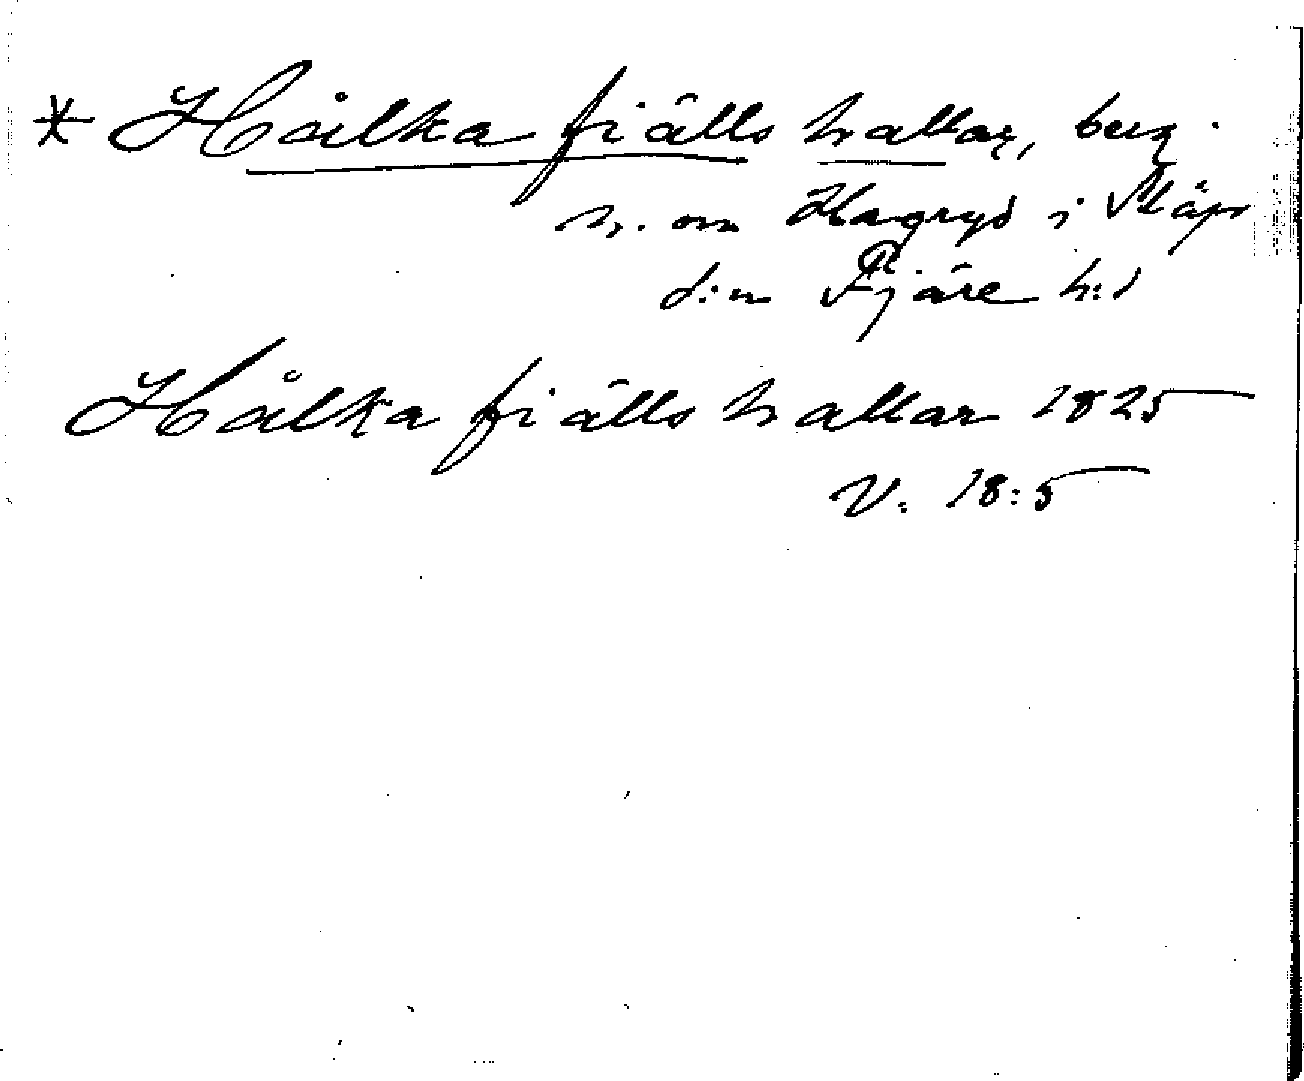 * Hålka fjälls hallar, berg
n. om Hagryd i Släps
s:n Fjäre h:d
Hålka fjälls hallar 1825
V. 18:5